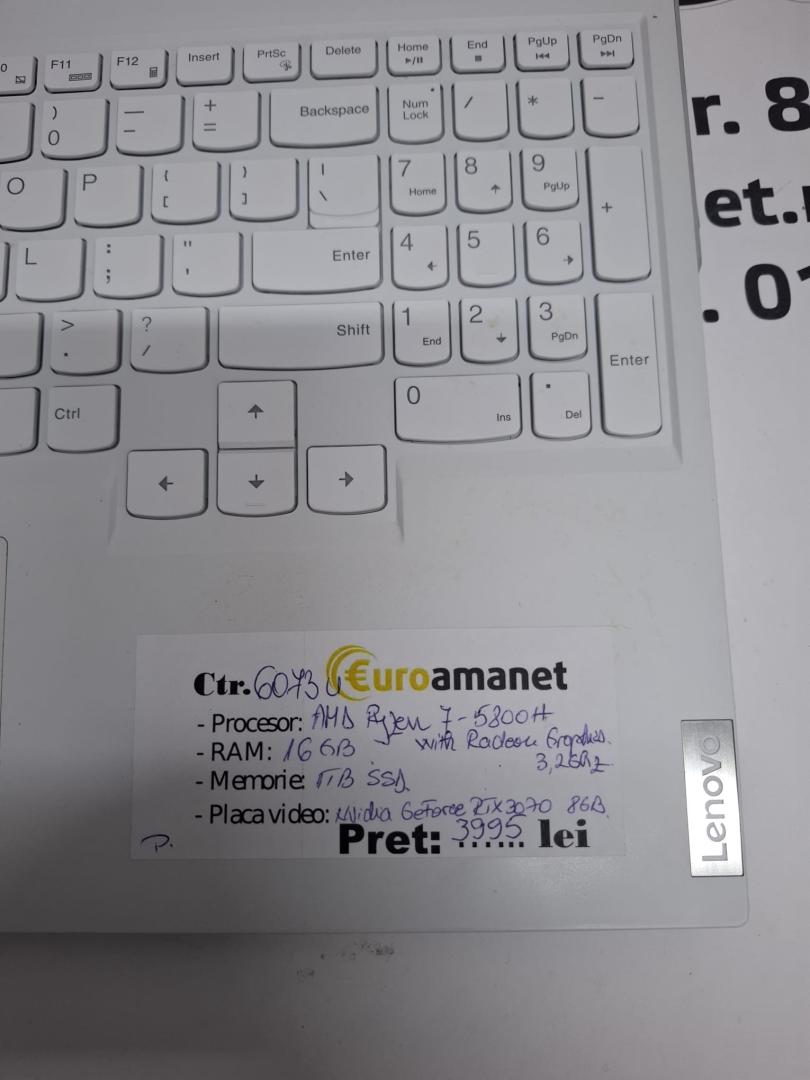 F11 F12 Insert PrtSc Delete Home End PgUp PgDn
) 0 — - + = Backspace Num Lock / * -
O P { [ } ] | \ 7 Home 8 9 PgUp +
L : ; " ' Enter 4 5 6
> . ? / Shift 1 End 2 3 PgDn Enter
Ctrl 0 Ins . Del
r. 8
et.
. 01
Ctr. 6073 Euroamanet
- Procesor: AMD Ryzen 7-5800H
with Radeon Graphics.
3,2GHz
- RAM: 16GB
- Memorie: 1TB SSD
- Placa video: Nvidia GeForce RTX3070 8GB
P. Pret: 3995 lei
Lenovo